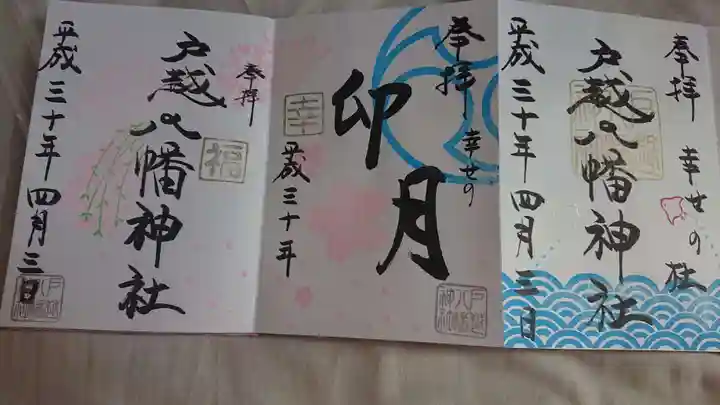 奉拝 幸せの杜
戸越八幡神社
平成三十年四月三日
奉拝 幸せの
卯月
平成三十年
幸
戸越八幡神社
奉拝
戸越八幡神社
福
平成三十年四月三日